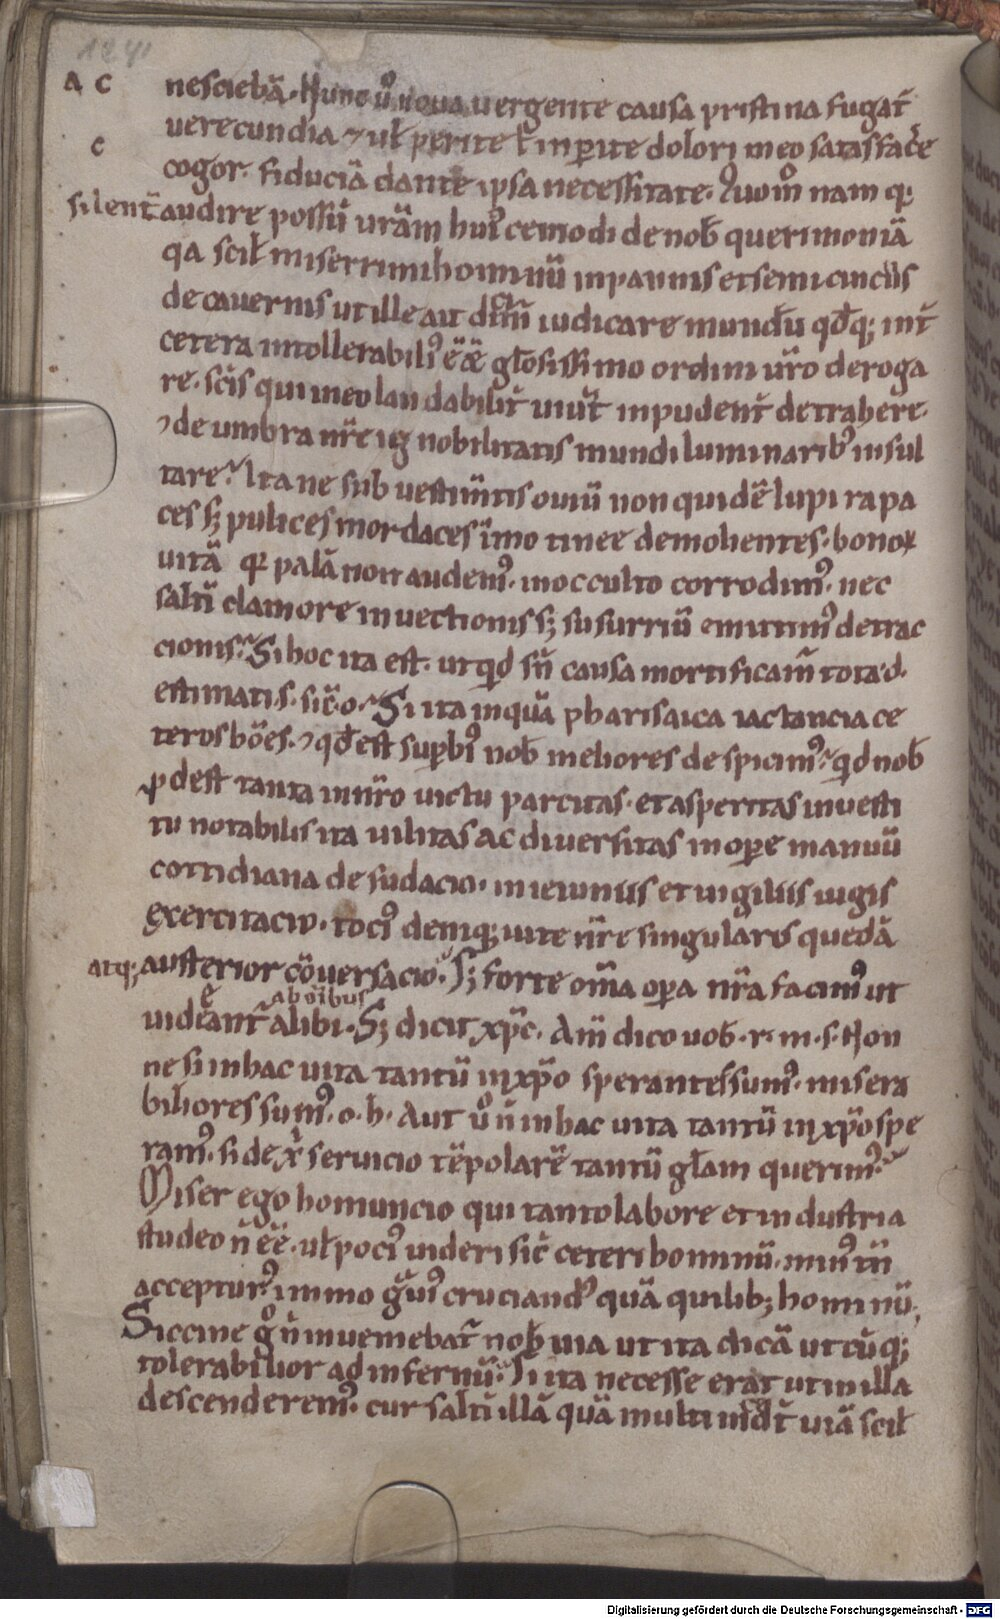 124v
A c nesciebā. Nunc ů noua uergente causa pristina fugat̄
uerecundia ⁊ uł perite ł inꝑite dolori meo satasfac̄e
c cogor. fiduciā dante ipsa necessitate. Quom̊ nam q;
silent̄ audire possū urām huiꝰcemodi de nob̄ querimoniā
qa scił miserrimi hominū inpannis et semicinctiis
de cauernis ut ille ait dict̄m iudicare mundū qd̄q; int̄
cetera intollerabiliꝰ ēē gl̄osissimo ordini ur̄o deroga
re. sc̄is qui in eo laudabilit̄ uiuūt inpudent̄ detrahere.
⁊ de umbra nr̄e ig nobilitatis mundi luminaribꝰ insul
tare? Ita ne sub uestim̄tis ouiū non quidē lupi rapa
ces sꝫ pulices mordaces īmo tinee demolientes. bonoꝝ
uitā qꝛ palā non audemꝰ. in occulto corrodimꝰ. nec
saltī clamore inuectionis sꝫ susurriū emittimꝰ detrac
cionis? Si hoc ita est. ut qd sn̄ causa mortificam̄ tota d.
estimati s. sic̄. o. Si ita inquā pharisaica iactancia ce
teros hōes. ⁊ qd̄ est suꝑbiꝰ nob̄ meliores despicimꝰ? qd nob̄
ꝓdest tanta in nr̄o uictu parcitas. et asperitas in uesti
tu notabilis ita uilitas ac diuersitas in oꝑe manuū
cottidiana desudacio. in ieiuniis et uigiliis iugis
exercitacio. tociꝰ deniq; uite nr̄e singularis quedā
atq; austerior cōuersacio? Sꝫ forte om̄a oꝑa nr̄a facimꝰ ut
uideant̄ ab oībus alibi. Sꝫ dicit xp̄c. Am̄ dico uob̄. r. m. s. Non
ne si in hac uita tantū in xp̄o sperantes sumꝰ. misera
biliores sumꝰ. o. h. Aut ů n̄ in hac uita tantū in xp̄o spe
ramꝰ. si de x̄ seruicio tēpolarē tantū gl̄am querimꝰ?
Miser ego homuncio qui tanto labore et industria
studeo n̄ ēē. uł pociꝰ uideri sic̄ ceteri hominū. minꝰ tn̄
accepturꝰ. immo g̊uiꝰ cruciandꝰ quā quilibꝫ hominū.
Siccine g̊ n̄ inueniebat̄ nob̄ uia ut ita dicā utcūq;
tolerabilior ad infernū? Si ita necesse erat ut in illa
descenderemꝰ. cur saltī illā quā multi incedt̄ uiā scił
Digitalisierung gefördert durch die Deutsche Forschungsgemeinschaft - DFG